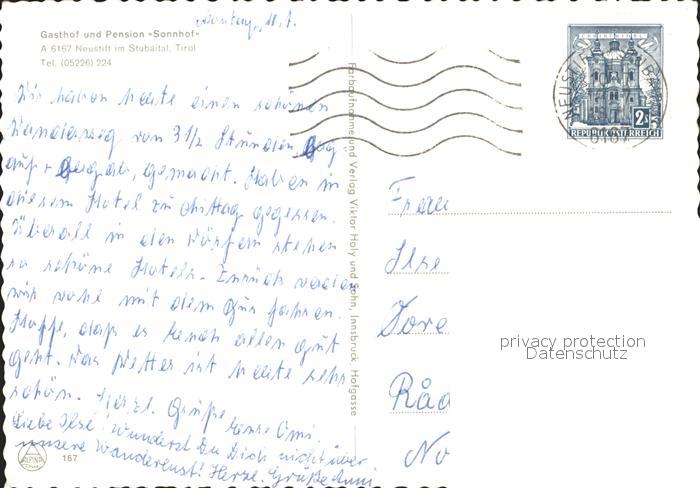 Montag, 11.7.
Gasthof und Pension »Sonnhof«
A 6167 Neustift im Stubaital, Tirol
Tel. (05226) 224
Wir haben heute einen schönen
Wanderweg von 3 1/2 Stunden, Berg-
auf + Bergab, gemacht. Haben in
diesem Hotel zu Mittag gegessen.
Überall in den Dörfern stehen
so schöne Hotels. Zurück werden
wir wohl mit dem Bus fahren.
Hoffe, daß es Euch allen gut
geht. Das Wetter ist heute sehr
schön. Herzl. Grüße Eure Omi.
Liebe Ilse! Wunderst Du Dich nicht über
unsere Wanderlust! Herzl. Grüße Anni
ALPINA
167
Farbaufnahme und Verlag Viktor Holy und Sohn, Innsbruck, Hofgasse
CHRISTKINDL
2S
REPUBLIK ÖSTERREICH
NEUSTIFT
6167
Frau
Ilse
Dore
Råd
No
privacy protection
Datenschutz